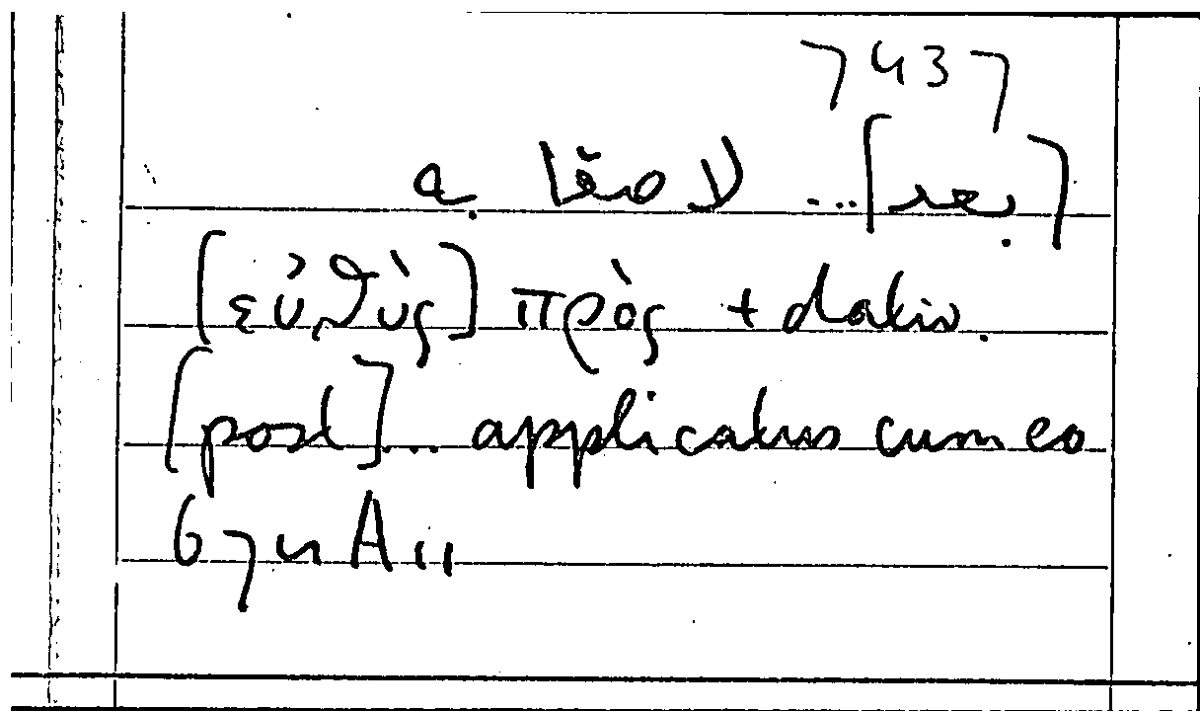 7437
[بعد] ... لاصقا به
[εὐθὺς] πρὸς + dativ.
[post] ... applicatus cum eo
674A11